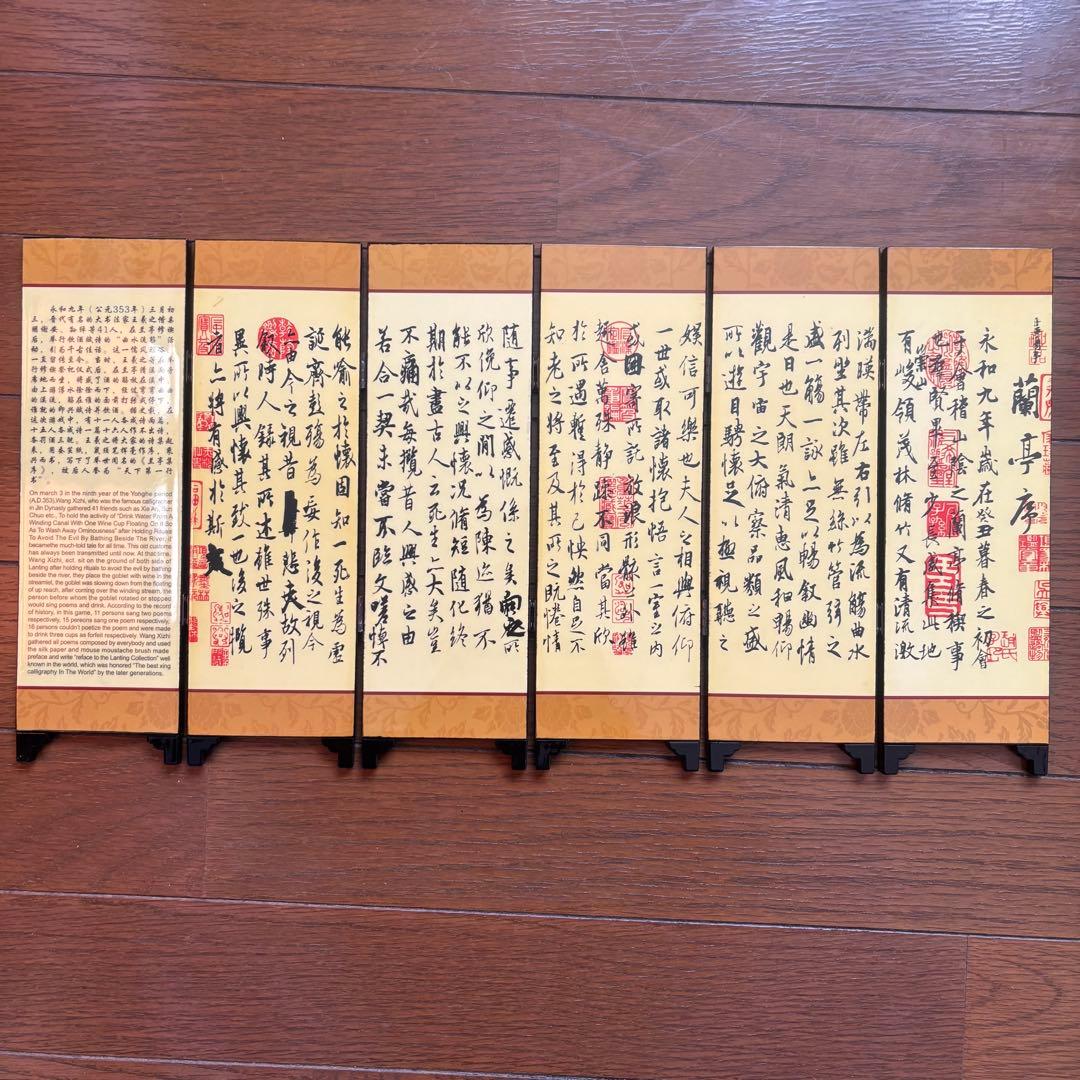 蘭亭序
永和九年歲在癸丑暮春之初會
于會稽山陰之蘭亭脩稧事
也羣賢畢至少長咸集此地
有崇山峻領茂林脩竹又有清流激
湍暎帶左右引以為流觴曲水
列坐其次雖無絲竹管弦之
盛一觴一詠亦足以暢敘幽情
是日也天朗氣清惠風和暢仰
觀宇宙之大俯察品類之盛
所以遊目騁懷足以極視聽之
娛信可樂也夫人之相與俯仰
一世或取諸懷抱悟言一室之內
或因寄所託放浪形骸之外雖
趣舍萬殊靜躁不同當其欣
於所遇暫得於己怏然自足不
知老之將至及其所之既惓情
隨事遷感慨係之矣向之所
欣俛仰之間以為陳迹猶不
能不以之興懷況脩短隨化終
期於盡古人云死生亦大矣豈
不痛哉每攬昔人興感之由
若合一契未嘗不臨文嗟悼不
能喻之於懷固知一死生為虛
誕齊彭殤為妄作後之視今
亦由今之視昔悲夫故列
敘時人錄其所述雖世殊事
異所以興懷其致一也後之攬
者亦將有感於斯文
永和九年（公元353年）三月初
三，晋代有名的大书法家王羲之偕亲朋
谢安、孙绰等41人，在兰亭修禊
后，举行饮酒赋诗的“曲水流觞”活动，
引为千古佳话。这一儒风雅俗，
一直留传至今。当时，王羲之等在举
行修禊祭祀仪式后，在兰亭清溪两旁
席地而坐，将盛了酒的觞放在溪中，
由上游浮水徐徐而下，经过弯弯曲曲
的溪流，觞在谁的面前打转或停下，
谁就得即兴赋诗并饮酒。据史载，在
这次游戏中，有十一人各成诗两首，
十五人各成诗一首，十六人作不出诗，
各罚酒三觥。王羲之将大家的诗集起
来，用蚕茧纸，鼠须笔挥毫作序，乘
兴而书，写下了举世闻名的《兰亭集
序》，被后人誉为“天下第一行
书”
On march 3 in the ninth year of the Yonghe period
(A.D.353),Wang Xizhi, who was the famous calligrapher
in Jin Dynasty gathered 41 friends such as Xie An, Sun
Chuo etc., To hold the activity of "Drink Water From A
Winding Canal With One Wine Cup Floating On It So
As To Wash Away Ominousness" after Holding Rituals
To Avoid The Evil By Bathing Beside The River, it
becamethe much-told tale for all time. This old custom
has always been transmitted until now. At that time,
Wang Xizhi, ect. sit on the ground of both side of
Lanting after holding rituals to avoid the evil by bathing
beside the river, they place the goblet with wine in the
streamlet, the goblet was slowing down from the floating
of up reach, after coming over the winding stream, the
person before whom the goblet rotated or stopped
would sing poems and drink. According to the record
of history, in this game, 11 persons sang two poems
respectively, 15 persons sang one poem respectively,
16 persons couldn't poetize the poem and were made
to drink three cups as forfeit respectively. Wang Xizhi
gathered all poems composed by everybody and used
the silk paper and mouse moustache brush made
preface and write "reface to the Lanting Collection" well
known in the world, which was honored "The best xing
calligraphy In The World" by the later generations.